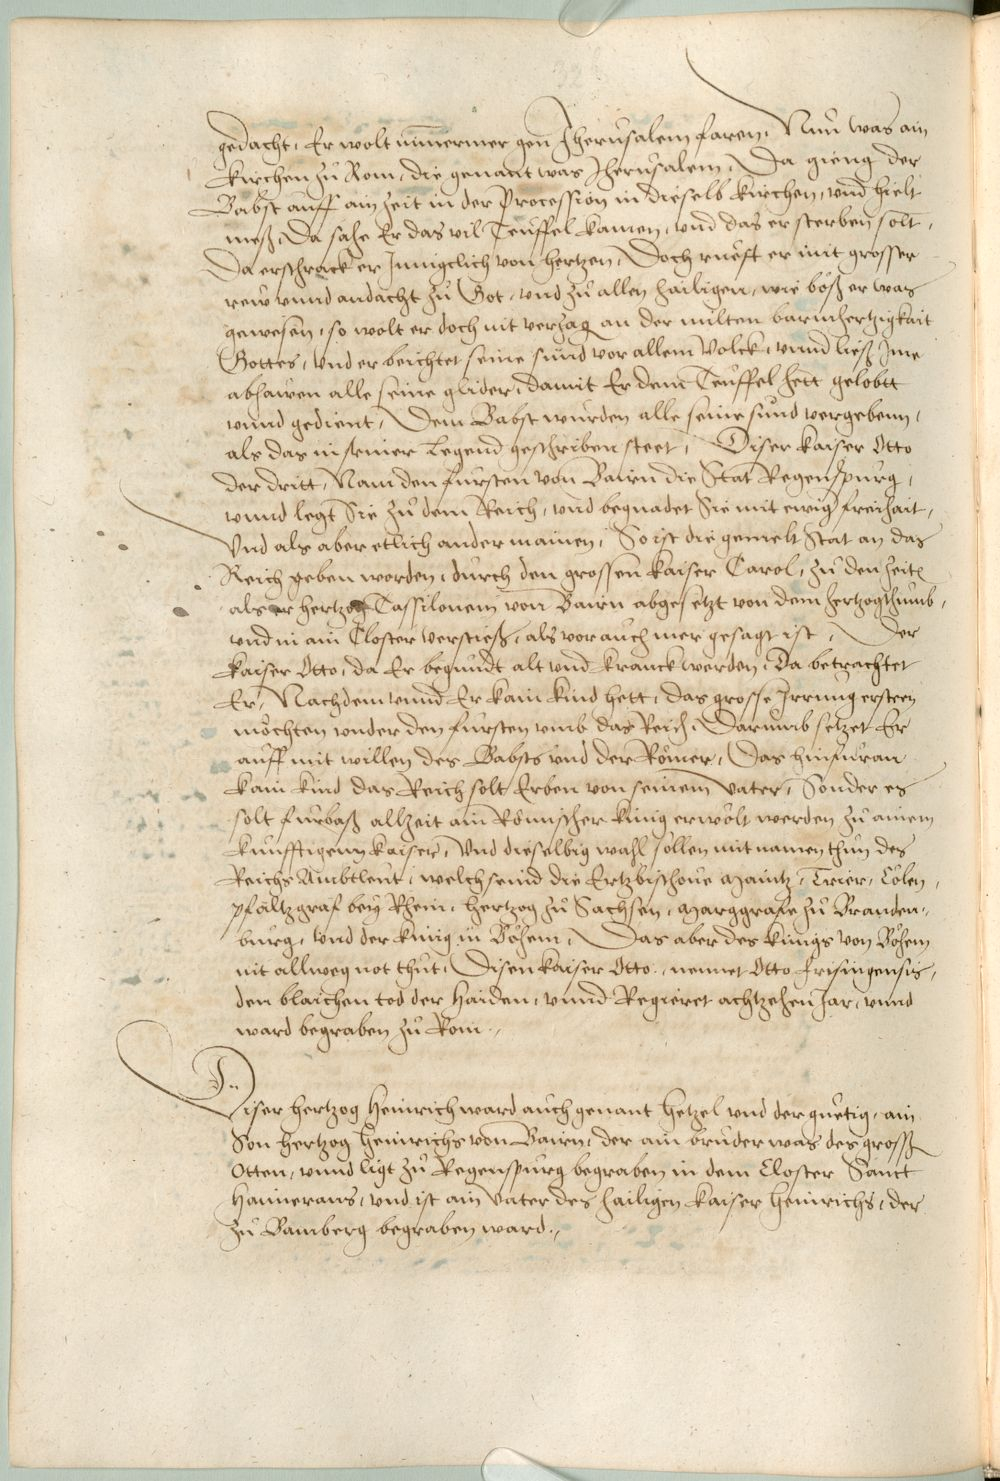 gedacht, Er wolt nimmermer gen Jherusalem faren, Nun was ain
kirchen zů Rom, die genant was Jherusalem, Da gieng der
Babst auff ain zeit in der Procession in dieselb kirchen, vnd hielt
meß, Da sahe Er das vil Teuffel kamen, vnd das er sterben solt,
Da erschrack er Jnnigclich von hertzen, Doch rueft er mit grosser
rew vnnd andacht zů Got, vnd zů allen hailigen, wie böß er was
gewesen, so wolt er doch nit verzag an der milten barmhertzigkait
Gottes, vnd er beichtet seine sünd vor allem Volck, vnnd ließ Jme
abhawen alle seine glider, damit Er dem Teuffel hett gelobtt
vnnd gedient, Dem Babst wurden alle seine sünd vergebenn,
als das in seiner Legend geschriben steet, Diser kaiser Otto
der dritt, Nam den fürsten von Bairn die Stat Regenspurg,
vnnd legt Sie zů dem Reich, vnd begnadet Sie mit ewig freihait,
Vnd als aber etlich ander mainen, So ist die gemelt Stat an das
Reich geben worden, durch den grossen kaiser Carol, zů den zeiten
als er hertzog Tassilonem von Bairn abgesetzt von dem hertzogthumb,
vnd in ain Closter verstieß, als vor auch mer gesagt ist, Der
kaiser Otto, da Er begundt alt vnd kranck werden, Da betrachtet
Er, Nachdem vnnd Er kain kind hett, das grosse Jrrung ersteen
möchten vnder den fürsten vmb das Reich, Darumb setzet Er
auff mit willen des Babsts vnd der Römer, Das hinfüran
kain kind das Reich solt Erben von seinem Vater, Sonder es
solt fürbaß allzeit ain Römischer künig erwölt werden zů ainem
künfftigenn kaiser, Vnd dieselbig wahl sollen mit namen thun des
Reichs Ambtleut, welch seind die Ertzbischoue Maintz, Trier, Cölen,
pfaltzgraf bey Rhein, hertzog zů Sachsen, Marggrafe zů Branden-
burg, vnd der künig in Böhem, Das aber des künigs von Böhem
nit allweg not thut, Disen kaiser Otto, nennet Otto Frisingensis,
den blaichen tod der Haiden, vnnd Regieret achtzehen Jar, vnnd
ward begraben zů Rom.
Diser hertzog Heinrich ward auch genant Hetzel vnd der guetig, ain
Son hertzog Heinrichs von Bairn, der ain bruder was des groß
Otten, vnnd ligt zů Regenspurg begraben in dem Closter Sanct
Haimerans, vnd ist ain Vater des hailigen kaiser Heinrichs, der
zů Bamberg begraben ward.